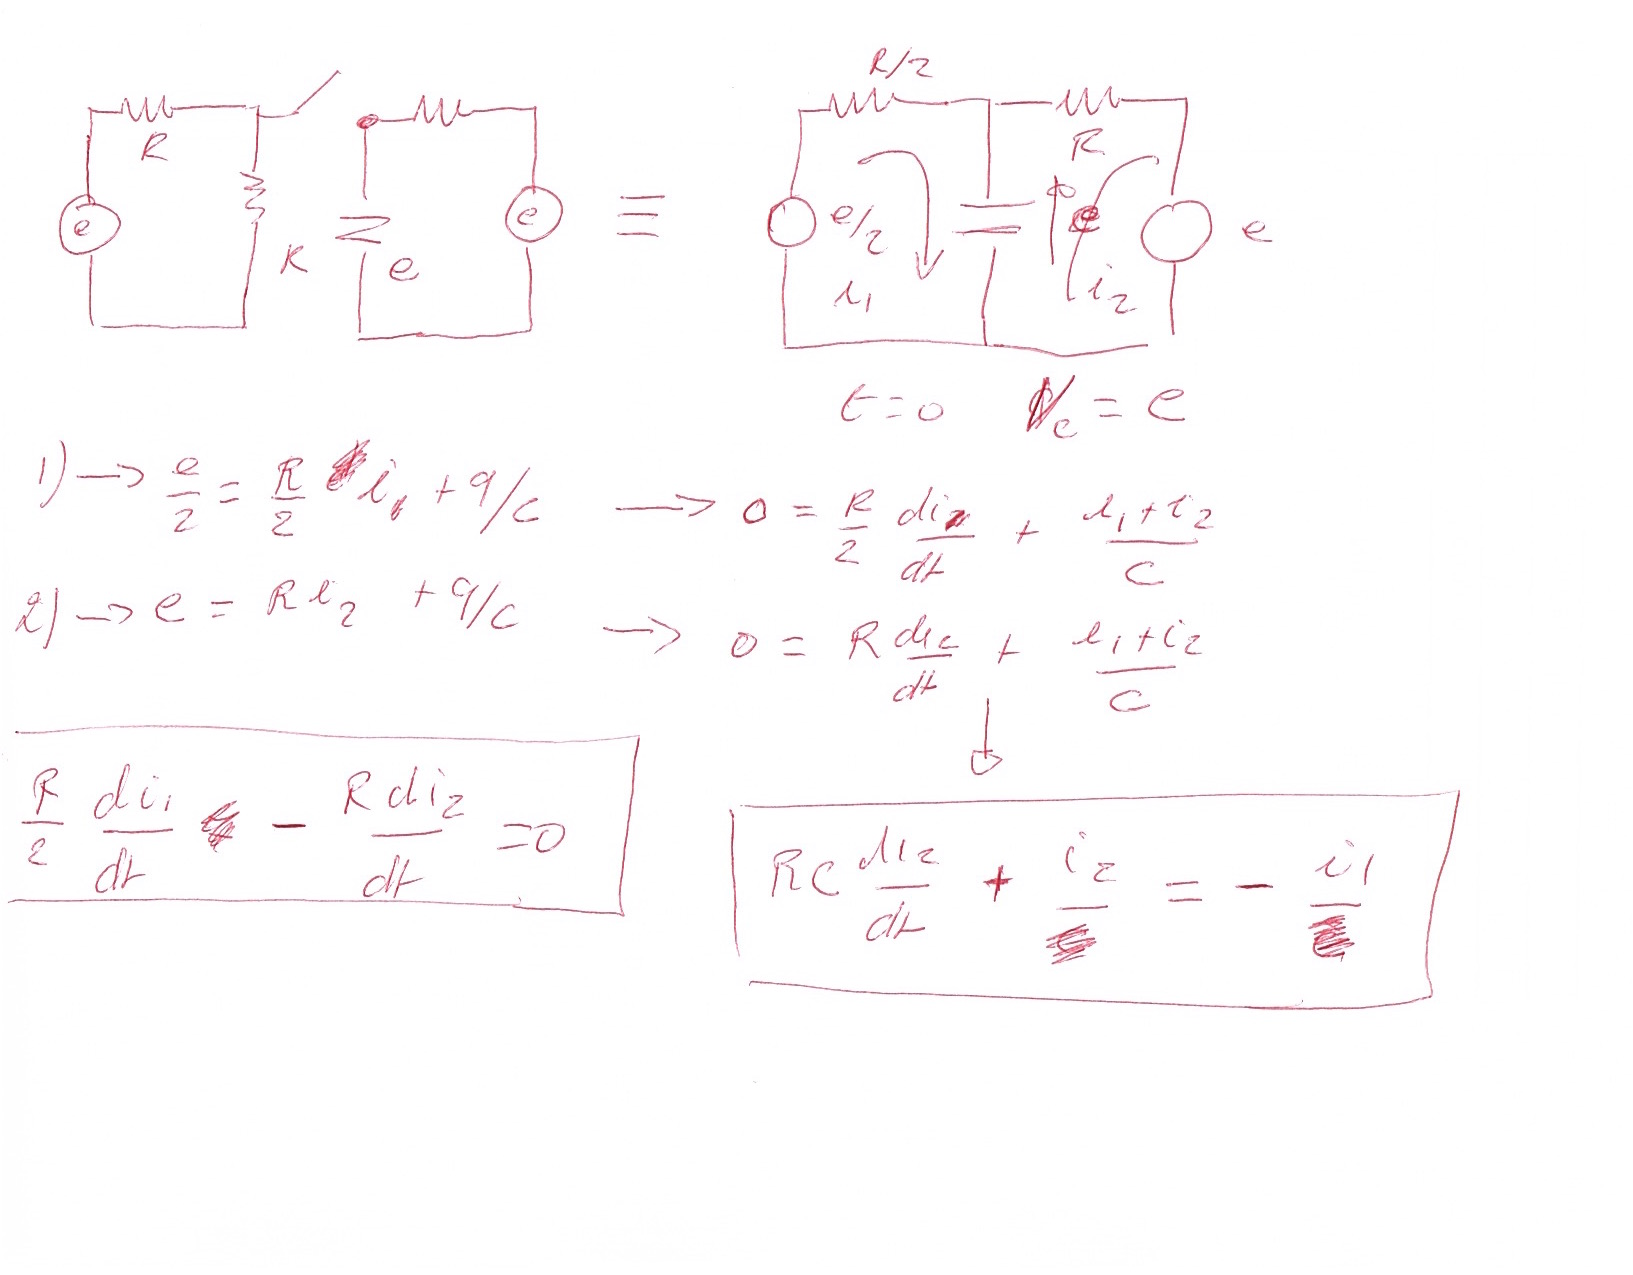 R/2
R
R
e
e
R
e
≡
e/2
i₁
e
i₂
e
t=0 V_c = e
1) → e/2 = R/2 i₁ + q/c → 0 = R/2 di₁/dt + (i₁+i₂)/C
2) → e = R i₂ + q/c → 0 = R di₂/dt + (i₁+i₂)/C
↓
R/2 di₁/dt - R di₂/dt = 0
RC di₂/dt + i₂ = - i₁